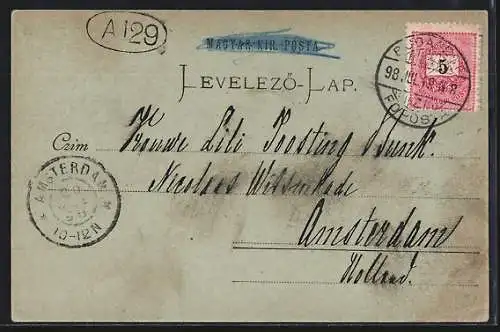 A 129
MAGYAR KIR. POSTA
LEVELEZŐ-LAP.
5
98. JUL. 18.
FŐPOSTA
Czim Vrouwe Lili Poosting
Nicolaas Witsenkade
Amsterdam
Holland.
AMSTERDAM
10-12N